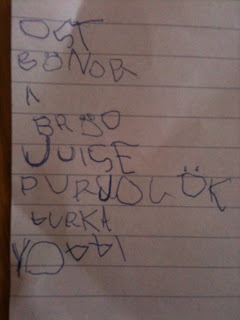 OST
BÖNOR
BRÖD
JUISE
PURJOLÖK
GURKA
YOGGI